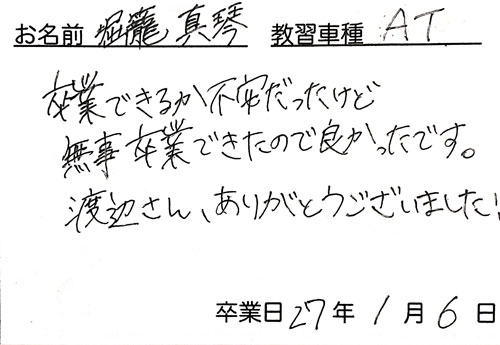 お名前 堀籠 真琴 教習車種 AT
卒業できるか不安だったけど
無事卒業できたので良かったです。
渡辺さん、ありがとうございました!
卒業日 27年 1月 6日